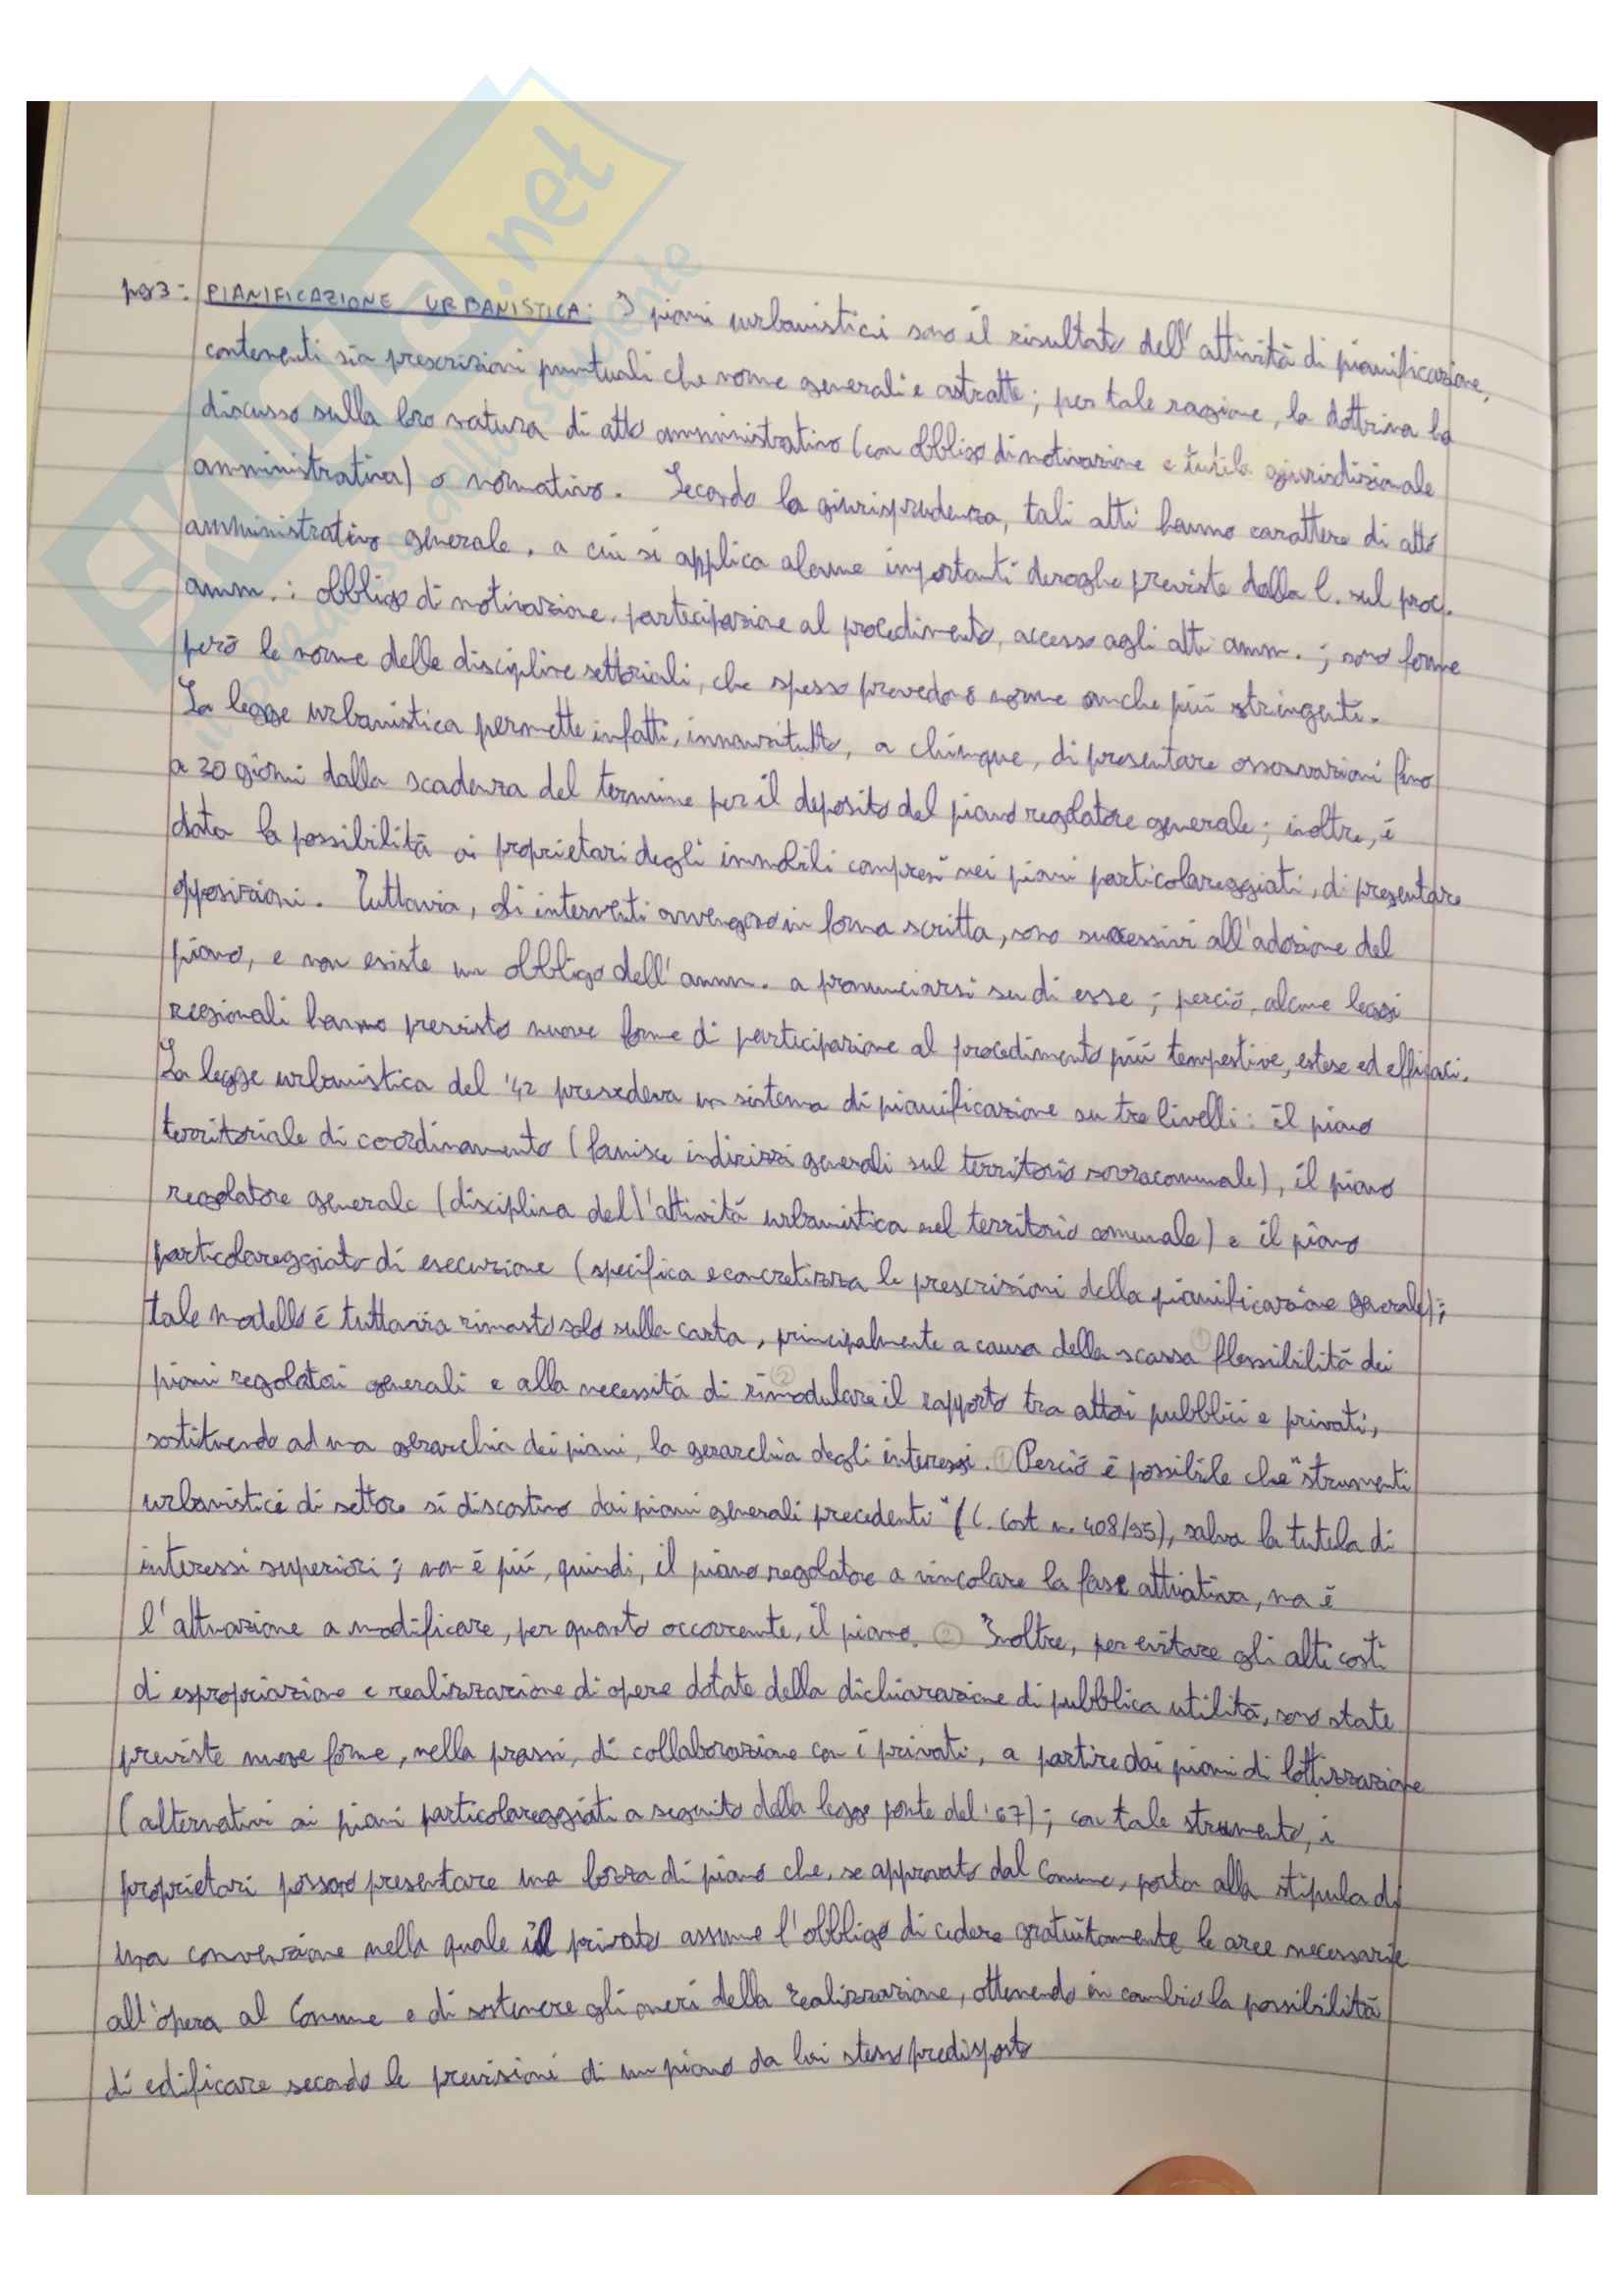 par3: PIANIFICAZIONE URBANISTICA: I piani urbanistici sono il risultato dell'attività di pianificazione,
contenenti sia prescrizioni puntuali che norme generali e astratte; per tale ragione, la dottrina ha
discusso sulla loro natura di atto amministrativo (con obbligo di motivazione e tutela giurisdizionale
amministrativa) o normativo. Secondo la giurisprudenza, tali atti hanno carattere di atto
amministrativo generale, a cui si applica alcune importanti deroghe previste dalla l. sul proc.
amm.: obbligo di motivazione, partecipazione al procedimento, accesso agli atti amm.; sono ferme
però le norme delle discipline settoriali, che spesso prevedono norme anche più stringenti.
La legge urbanistica permette infatti, innanzitutto, a chiunque, di presentare osservazioni fino
a 30 giorni dalla scadenza del termine per il deposito del piano regolatore generale; inoltre, è
data la possibilità ai proprietari degli immobili compresi nei piani particolareggiati, di presentare
opposizioni. Tuttavia, gli interventi avvengono in forma scritta, sono successivi all'adozione del
piano, e non esiste un obbligo dell'amm. a pronunciarsi su di esse; perciò, alcune leggi
regionali hanno previsto nuove forme di partecipazione al procedimento più tempestive, estese ed efficaci.
La legge urbanistica del '42 prevedeva un sistema di pianificazione su tre livelli: il piano
territoriale di coordinamento (fornisce indirizzi generali sul territorio sovracomunale), il piano
regolatore generale (disciplina dell'attività urbanistica nel territorio comunale) e il piano
particolareggiato di esecuzione (specifica e concretizza le prescrizioni della pianificazione generale);
tale modello è tuttavia rimasto solo sulla carta, principalmente a causa della scarsa ① flessibilità dei
piani regolatori generali e alla necessità di ② rimodulare il rapporto tra attori pubblici e privati,
sostituendo ad una gerarchia dei piani, la gerarchia degli interessi. ① Perciò è possibile che "strumenti
urbanistici di settore si discostino dai piani generali precedenti" (C. Cost n. 408/95), salva la tutela di
interessi superiori; non è più, quindi, il piano regolatore a vincolare la fase attuativa, ma è
l'attuazione a modificare, per quanto occorrente, il piano. ② Inoltre, per evitare gli alti costi
di espropriazione e realizzazione di opere dotate della dichiarazione di pubblica utilità, sono state
previste nuove forme, nella prassi, di collaborazione con i privati, a partire dai piani di lottizzazione
(alternativi ai piani particolareggiati a seguito della legge ponte del '67); con tale strumento, i
proprietari possono presentare una bozza di piano che, se approvato dal Comune, porta alla stipula di
una convenzione nella quale il privato assume l'obbligo di cedere gratuitamente le aree necessarie
all'opera al Comune e di sostenere gli oneri della realizzazione, ottenendo in cambio la possibilità
di edificare secondo le previsioni di un piano da lui stesso predisposto